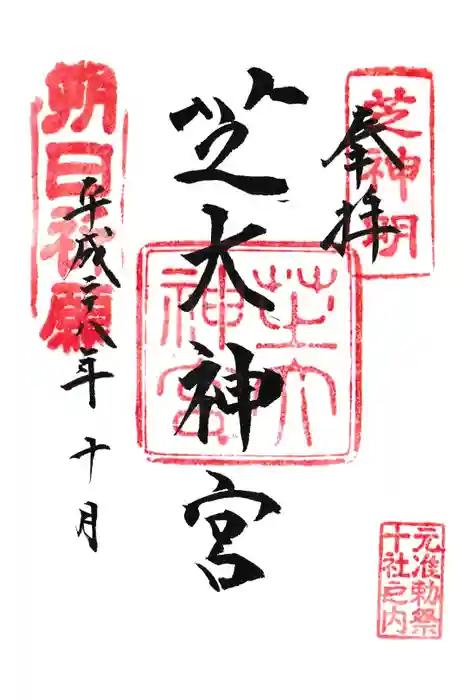 奉拝
芝神明
芝大神宮
芝大
神宮
朔日祈願
平成二八年十月
元准勅祭
十社之内